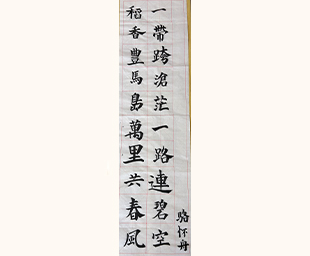 一帶跨滄茫一路連碧空
稻香豐馬島萬里共春風
駱怀舟